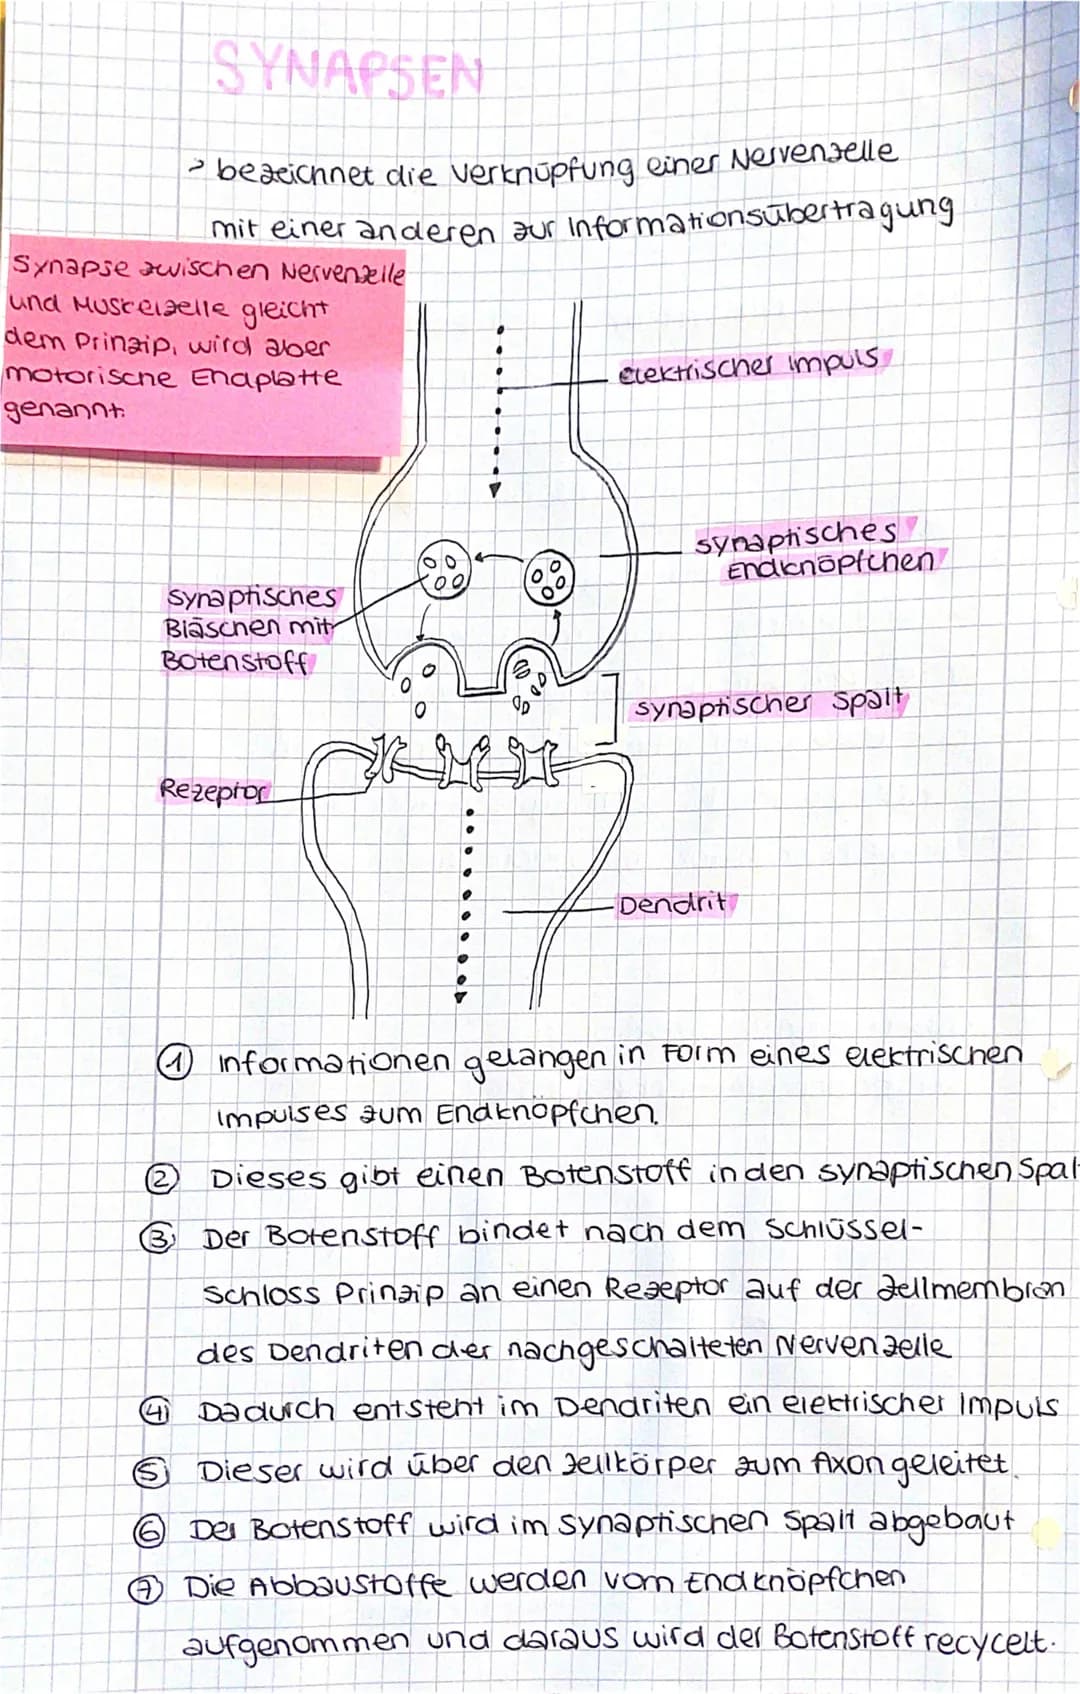 SYNAPSEN
> bezeichnet die Verknüpfung einer Nervenzelle
mit einer anderen zur Informationsübertragung
Synapse zwischen Nervenzelle
und Muskelzelle gleicht
dem Prinzip, wird aber
motorische Endplatte
genannt.
elektrischer Impuls
synaptisches
Endknöpfchen
Synaptisches
Bläschen mit
Botenstoff
synaptischer Spalt
Rezeptor
Dendrit
① Informationen gelangen in Form eines elektrischen
Impulses zum Endknöpfchen.
② Dieses gibt einen Botenstoff in den synaptischen Spal
③ Der Botenstoff bindet nach dem Schlüssel-
Schloss Prinzip an einen Rezeptor auf der Zellmembran
des Dendriten der nachgeschalteten Nervenzelle
④ Dadurch entsteht im Dendriten ein elektrischer Impuls
⑤ Dieser wird über den Zellkörper zum Axon geleitet.
⑥ Der Botenstoff wird im synaptischen Spalt abgebaut
⑦ Die Abbaustoffe werden vom Endknöpfchen
aufgenommen und daraus wird der Botenstoff recycelt.